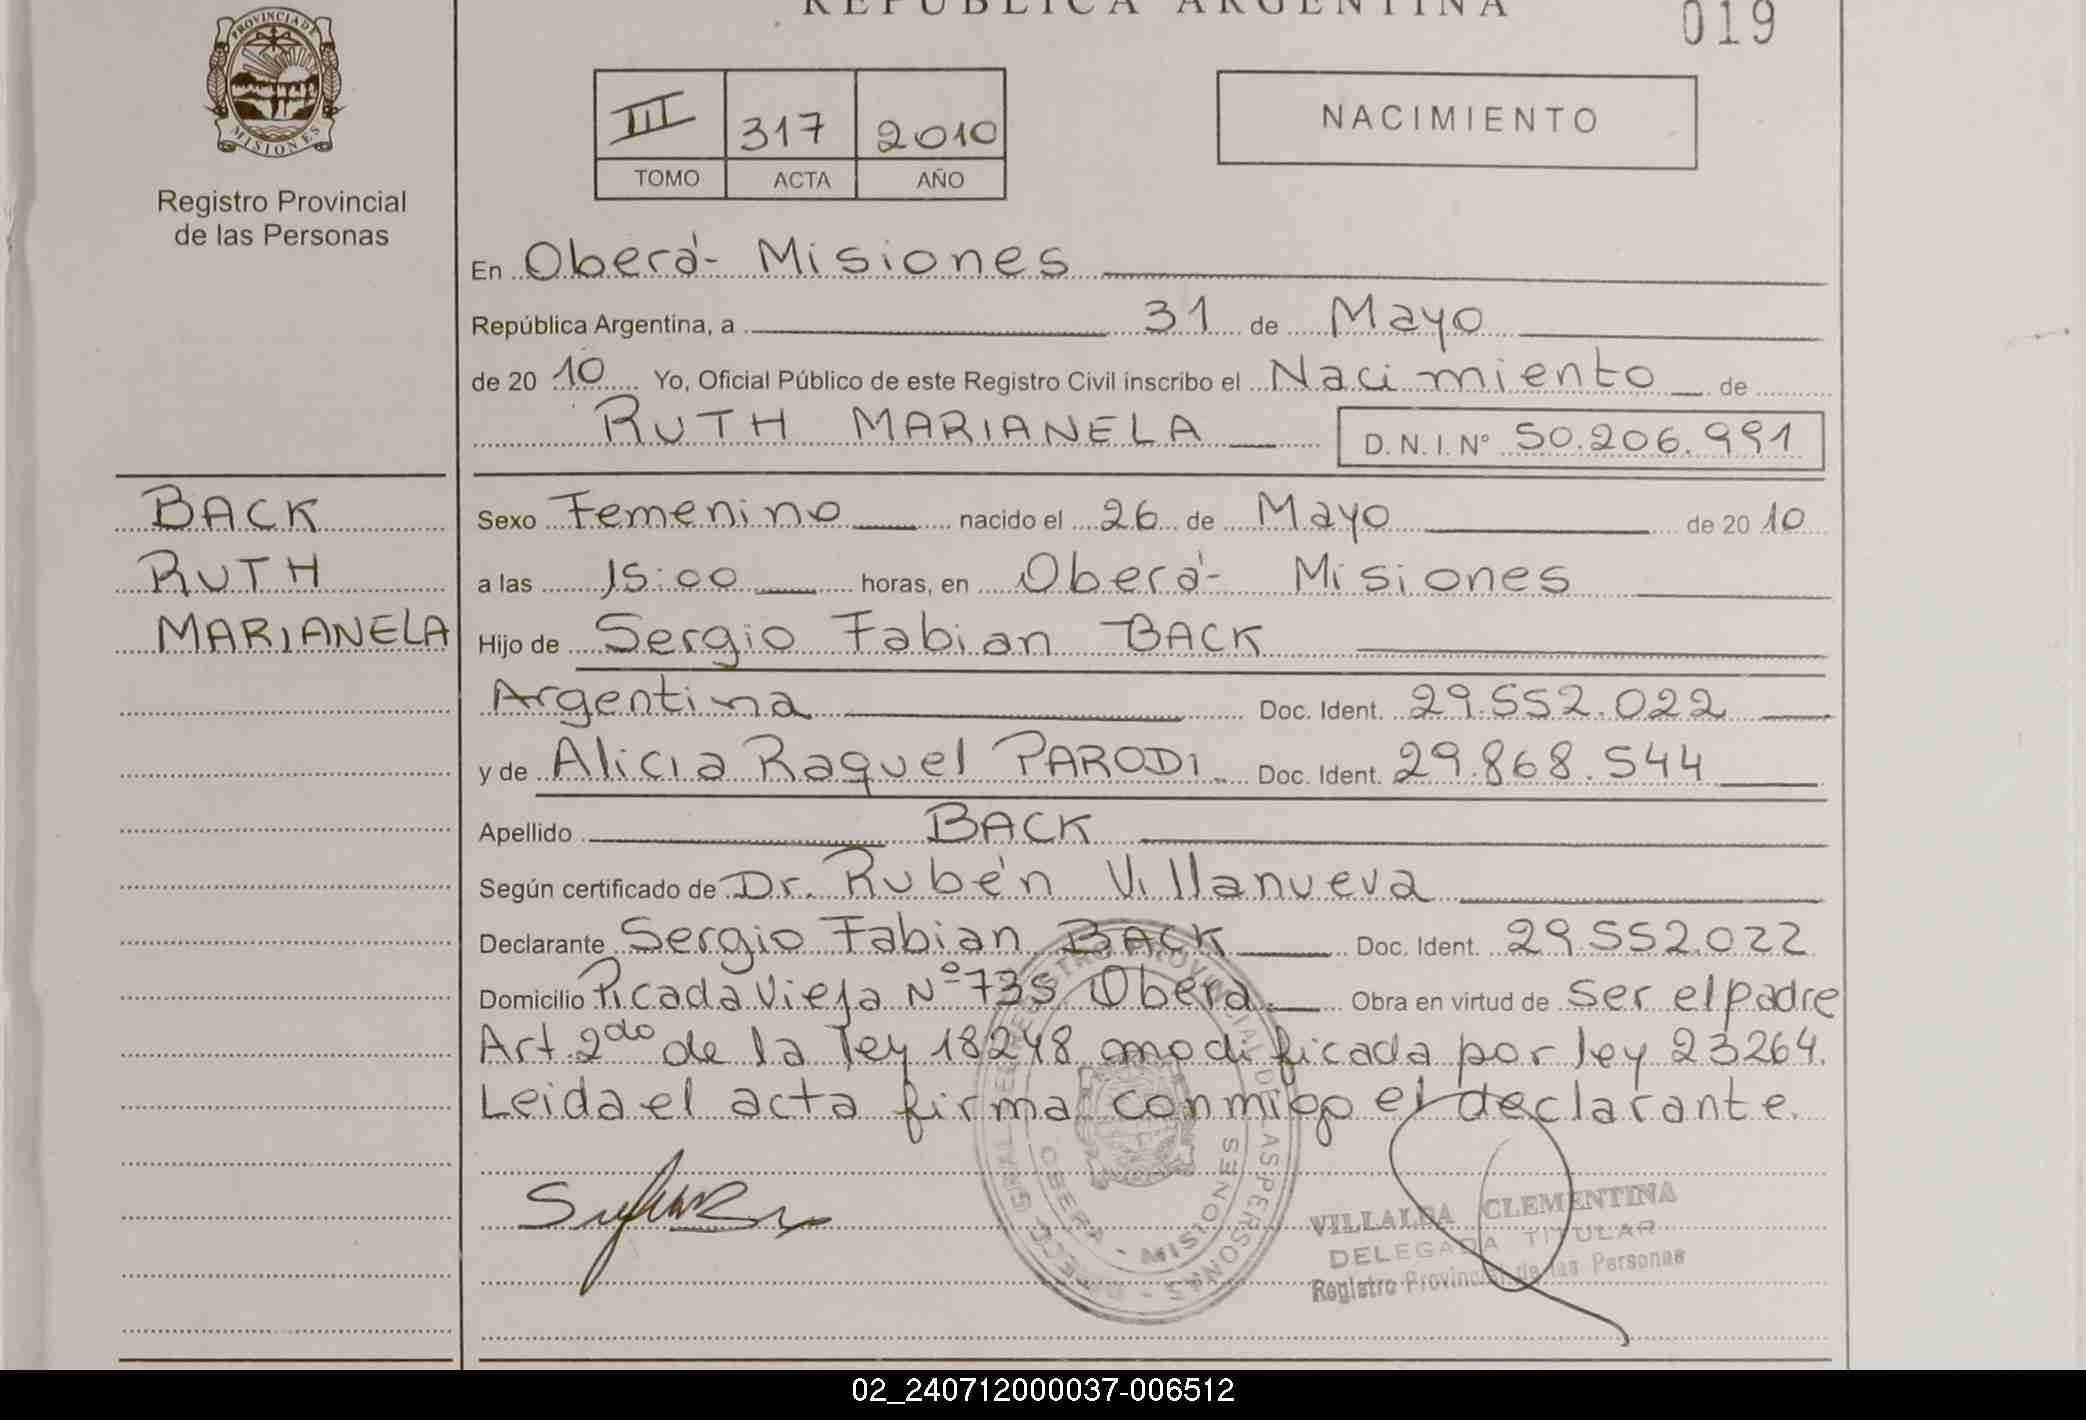 REPUBLICA ARGENTINA
019
PROVINCIA DE MISIONES
Registro Provincial
de las Personas
III 317 2010
TOMO ACTA AÑO
NACIMIENTO
En Oberá- Misiones
República Argentina, a 31 de Mayo
de 20 10 Yo, Oficial Público de este Registro Civil inscribo el Nacimiento de
RUTH MARIANELA D.N.I. Nº 50.206.991
BACK
RUTH
MARIANELA
Sexo Femenino nacido el 26 de Mayo de 20 10
a las 15:00 horas, en Oberá- Misiones
Hijo de Sergio Fabian BACK
Argentina Doc. Ident. 29.552.022
y de Alicia Raquel PARODI Doc. Ident. 29.868.544
Apellido BACK
Según certificado de Dr. Rubén Villanueva
Declarante Sergio Fabian BACK Doc. Ident. 29.552.022
Domicilio Picada Vieja Nº 735 Oberá. Obra en virtud de ser el padre
Art. 2do de la ley 18248 modificada por ley 23264.
Leida el acta firma conmigo el declarante.
REGISTRO PROVINCIAL DE LAS PERSONAS
OBERA - MISIONES
VILLALBA CLEMENTINA
DELEGADA TITULAR
Registro Provincial de las Personas
02_240712000037-006512